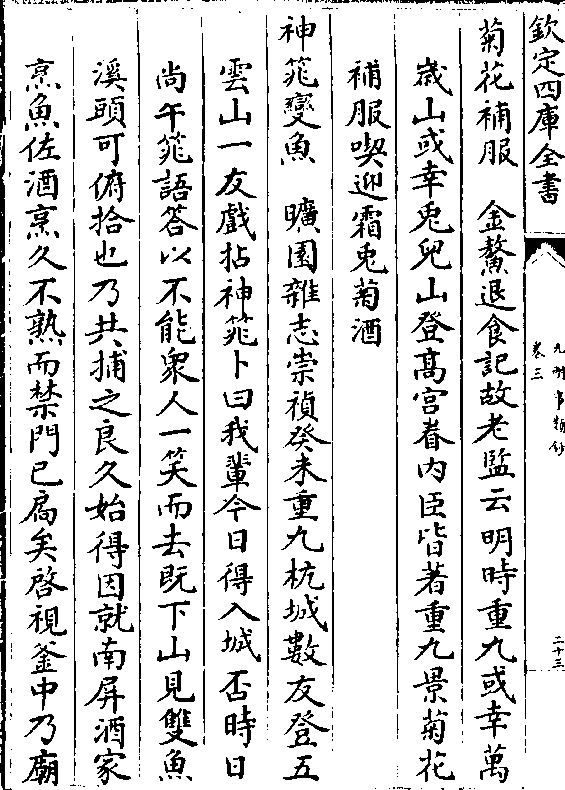 欽定四庫全書
卷三
二十三
菊花補服　金鰲退食記故老監云明時重九或幸萬
歲山或幸兎兒山登髙宫眷内臣皆著重九景菊花
補服喫迎霜兎菊酒
神筄變魚　曠園雜志崇禎癸未重九杭城數友登五
雲山一友戲拈神筄卜曰我輩今日得入城否時日
尚午筄語答以不能衆人一笑而去既下山見雙魚
溪頭可俯拾也乃共捕之良久始得因就南屏酒家
烹魚佐酒烹久不熟而禁門已扄矣啓視釜中乃廟